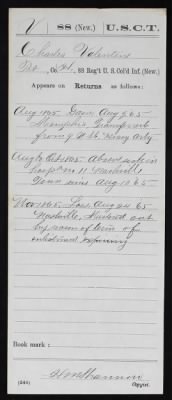 V | 88 (New.) | U.S.C.T.
Charles Valentine
Pvt., Co. H, 88 Reg't U.S. Col'd Inf. (New.)
Appears on Returns as follows:
Aug 1865 Gain Aug 9 65
Memphis Transferred
from 9 U.S. Heavy Arty
Aug to Oct 1865 Absent sick in
Hosp No 11 Nashville
Tenn since Aug 10 65
Nov 1865 Loss Aug 24 65
Nashville, Mustered out
by reason of term of
enlistment expiring
Book mark:
H M Shannon
(546) Copyist.